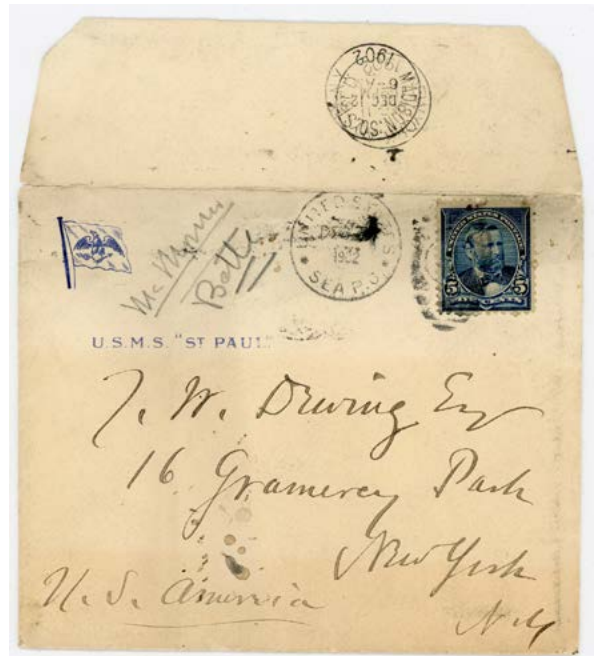 MADISON SQ. STA. N.Y.
DEC 12
6-A
1902
UNITED STATES
1902
SEA P.O.
UNITED STATES POSTAGE
5 5
FIVE CENTS
U.S.M.S. "ST PAUL"
T. W. Dewing Esq
16 Gramercy Park
New York
N.Y.
U. S. America